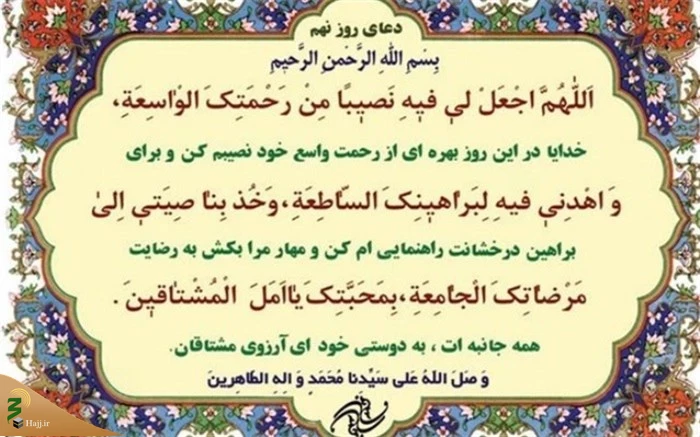 دعای روز نهم
بِسْمِ اللهِ الرَّحْمنِ الرَّحیْمِ
اَللّٰهُمَّ اجْعَلْ لی فیهِ نَصیبًا مِنْ رَحْمَتِکَ الوٰاسِعَةِ،
خدایا در این روز بهره ای از رحمت واسع خود نصیبم کن و برای
وَ اهْدِنی فیهِ لِبَراهینِکَ السّاطِعَةِ، وَخُذ بِنا صِیَتی اِلیٰ
براهین درخشانت راهنمایی ام کن و مهار مرا بکش به رضایت
مَرْضاتِکَ الْجامِعَةِ، بِمَحَبَّتِکَ یٰا اَمَلَ الْمُشْتٰاقینَ.
همه جانبه ات، به دوستی خود ای آرزوی مشتاقان.
وَ صَلَ اللهُ عَلی سَیِّدنا مُحَمَدٍ وَ الِهِ الطّاهِرینَ
Hajj.ir